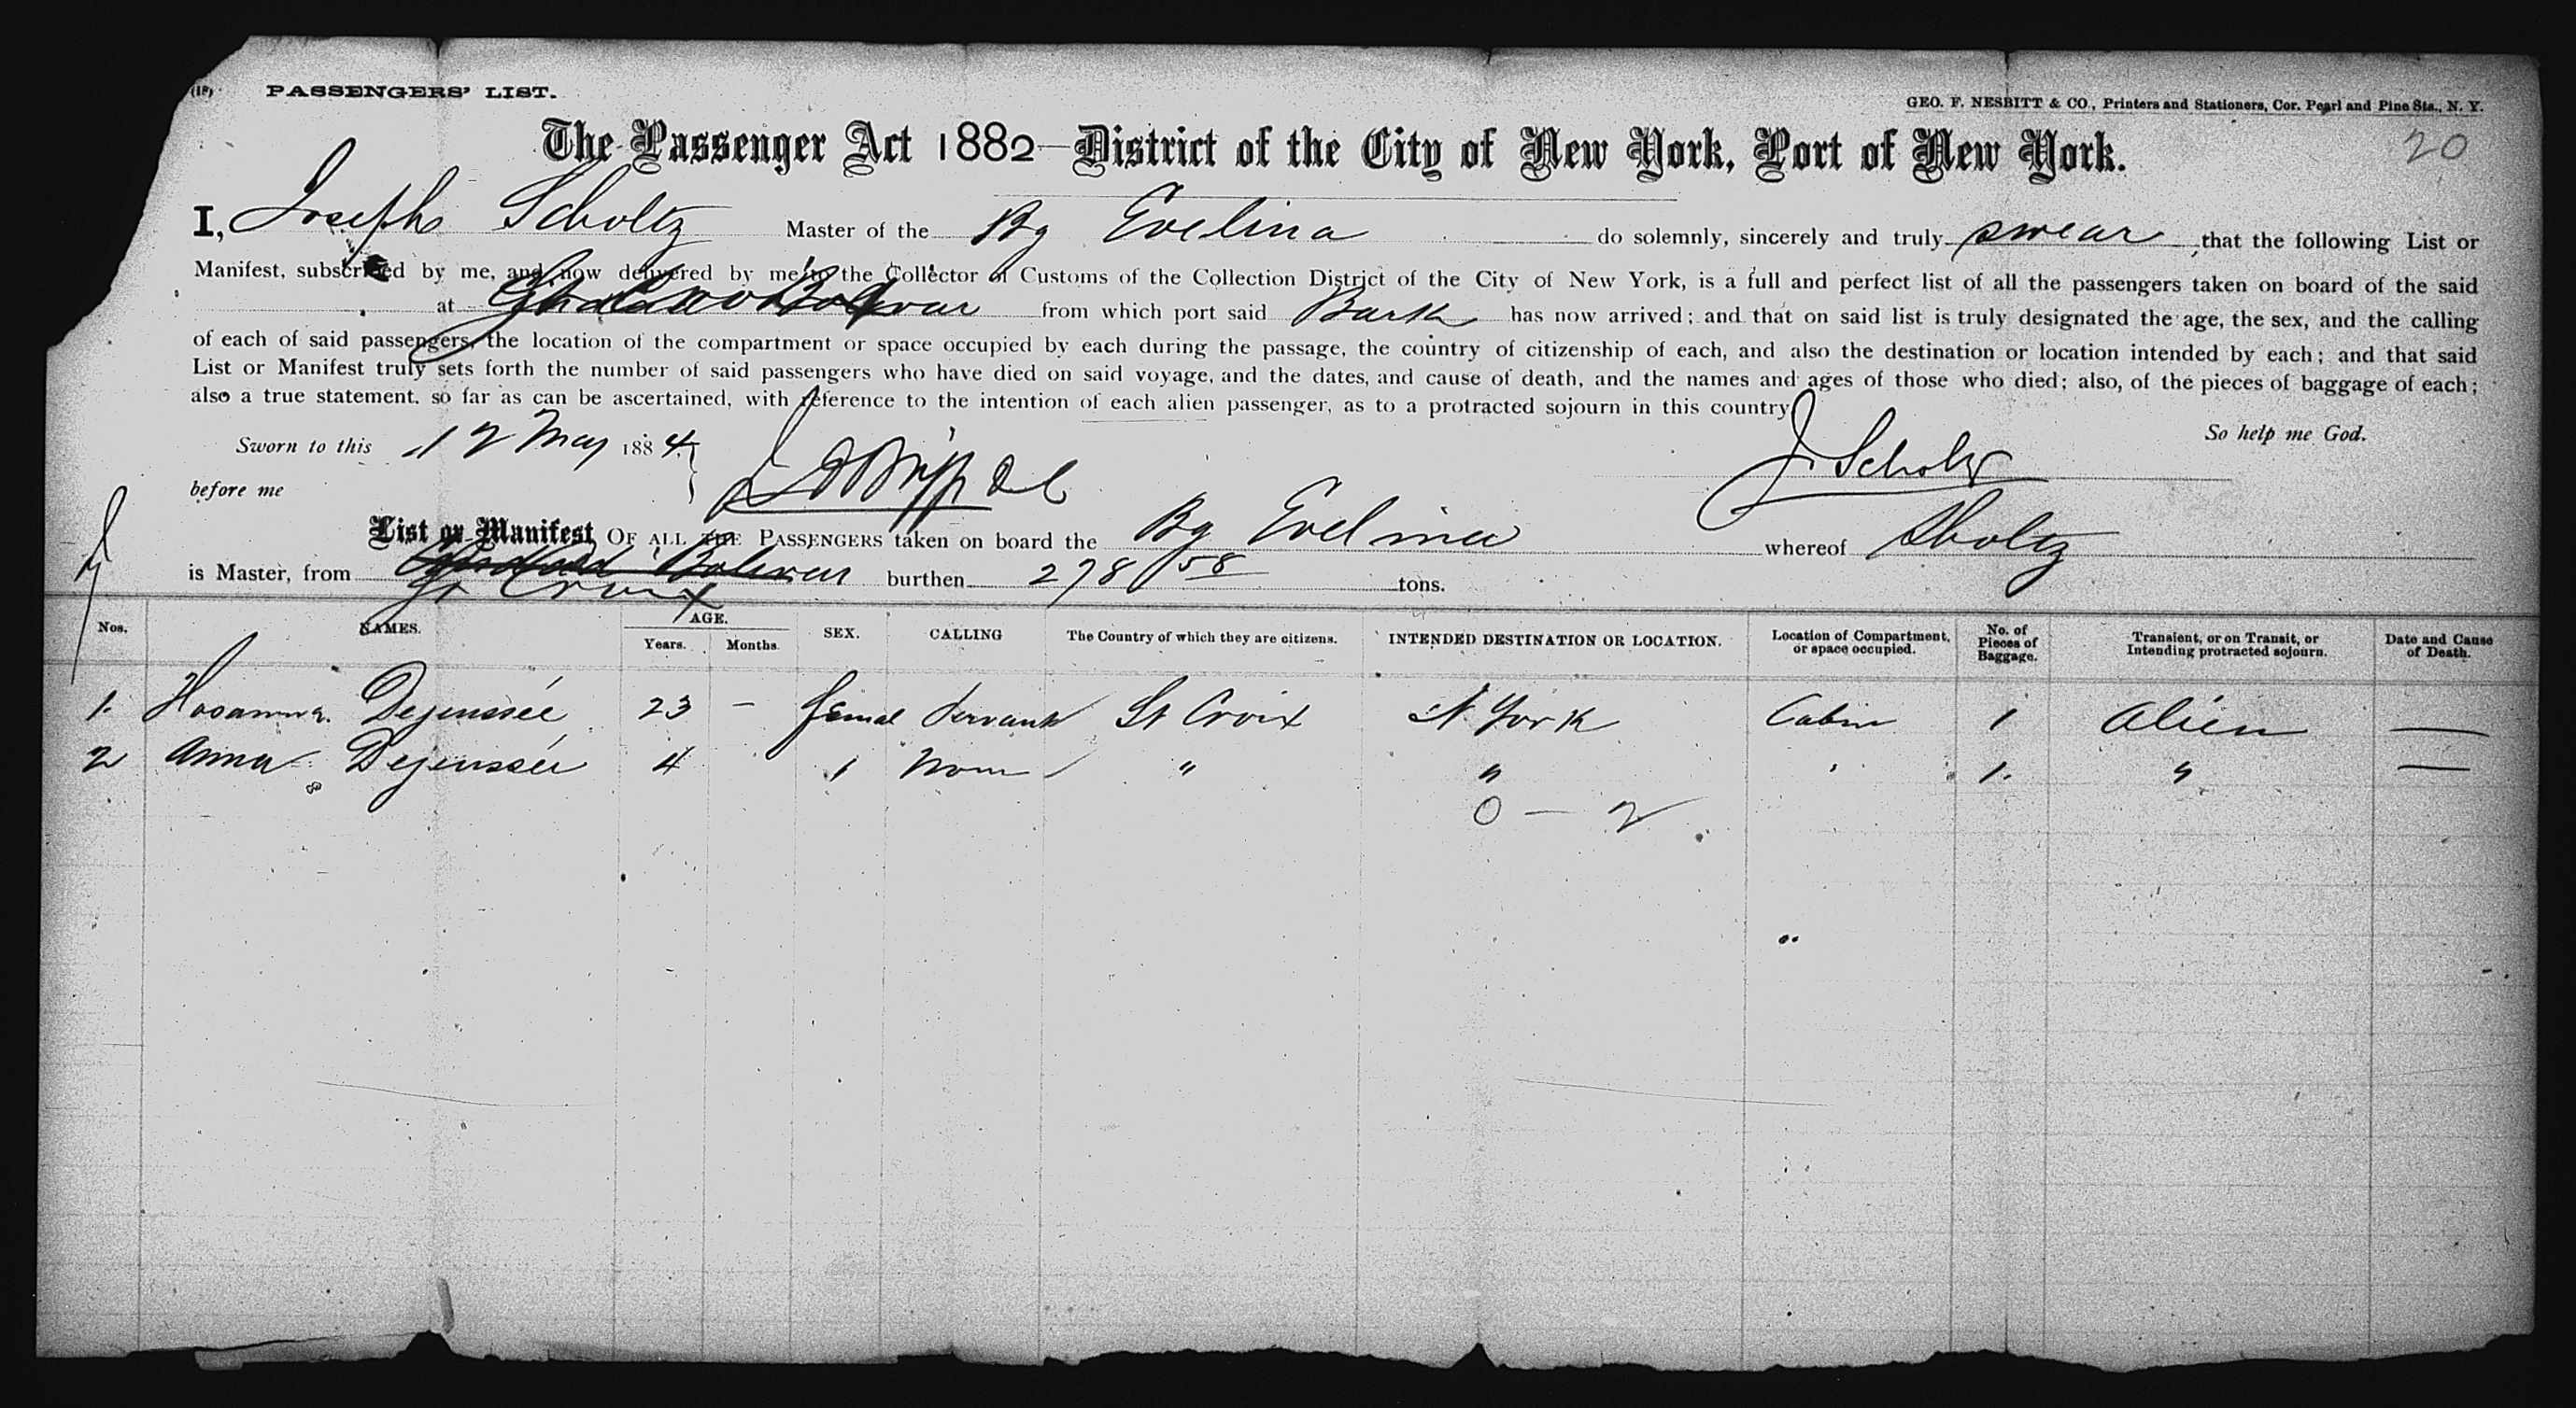 (18) PASSENGERS' LIST.
GEO. F. NESBITT & CO., Printers and Stationers, Cor. Pearl and Pine Sts., N. Y.
20
The Passenger Act 1882—District of the City of New York, Port of New York.
I, Joseph Scholtz Master of the Bg Evelina do solemnly, sincerely and truly swear, that the following List or
Manifest, subscribed by me, and now delivered by me to the Collector of Customs of the Collection District of the City of New York, is a full and perfect list of all the passengers taken on board of the said
at Bolivar from which port said Bark has now arrived; and that on said list is truly designated the age, the sex, and the calling
of each of said passengers, the location of the compartment or space occupied by each during the passage, the country of citizenship of each, and also the destination or location intended by each; and that said
List or Manifest truly sets forth the number of said passengers who have died on said voyage, and the dates, and cause of death, and the names and ages of those who died; also, of the pieces of baggage of each;
also a true statement, so far as can be ascertained, with reference to the intention of each alien passenger, as to a protracted sojourn in this country
So help me God.
Sworn to this 12 May 1884
J. Scholtz
before me
List or Manifest OF ALL THE PASSENGERS taken on board the Bg Evelina whereof Sholtz
is Master, from Bolivar burthen 278 58 tons.
St Croix
Nos. NAMES. AGE. Years. Months. SEX. CALLING The Country of which they are citizens. INTENDED DESTINATION OR LOCATION. Location of Compartment, or space occupied. No. of Pieces of Baggage. Transient, or on Transit, or Intending protracted sojourn. Date and Cause of Death.
1. Hosanna. Dejenssée 23 — femal servant St Croix N York Cabin 1 Alien —
2 Anna Dejenssée 4 1 Non " " ' 1. " —
0 — 2